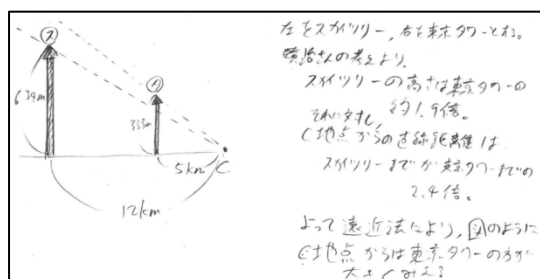 ス
タ
634m
333m
5km
C
12km
左をスカイツリー, 右を東京タワーとする。
賢治さんの考えより,
スカイツリーの高さは東京タワーの
約1.9倍。
それに対し,
C地点からの直線距離は
スカイツリーまでが東京タワーまでの
2.4倍。
よって遠近法により, 図のように
C地点からは東京タワーの方が
大きくみえる